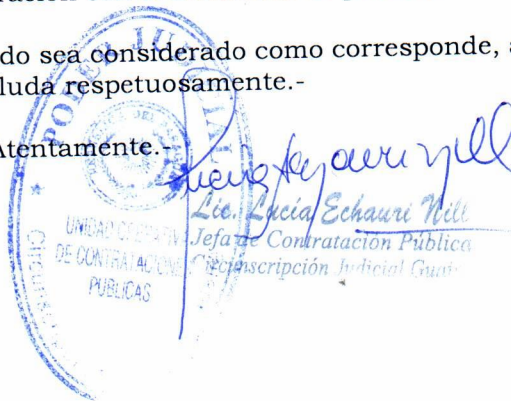 do sea considerado como corresponde, a
luda respetuosamente.-
Atentamente.-
PODER JUDICIAL
Lic. Lucía Echauri Nill
Jefa de Contratación Pública
Circunscripción Judicial
UNIDAD
DE CONTRATACIONES
PUBLICAS